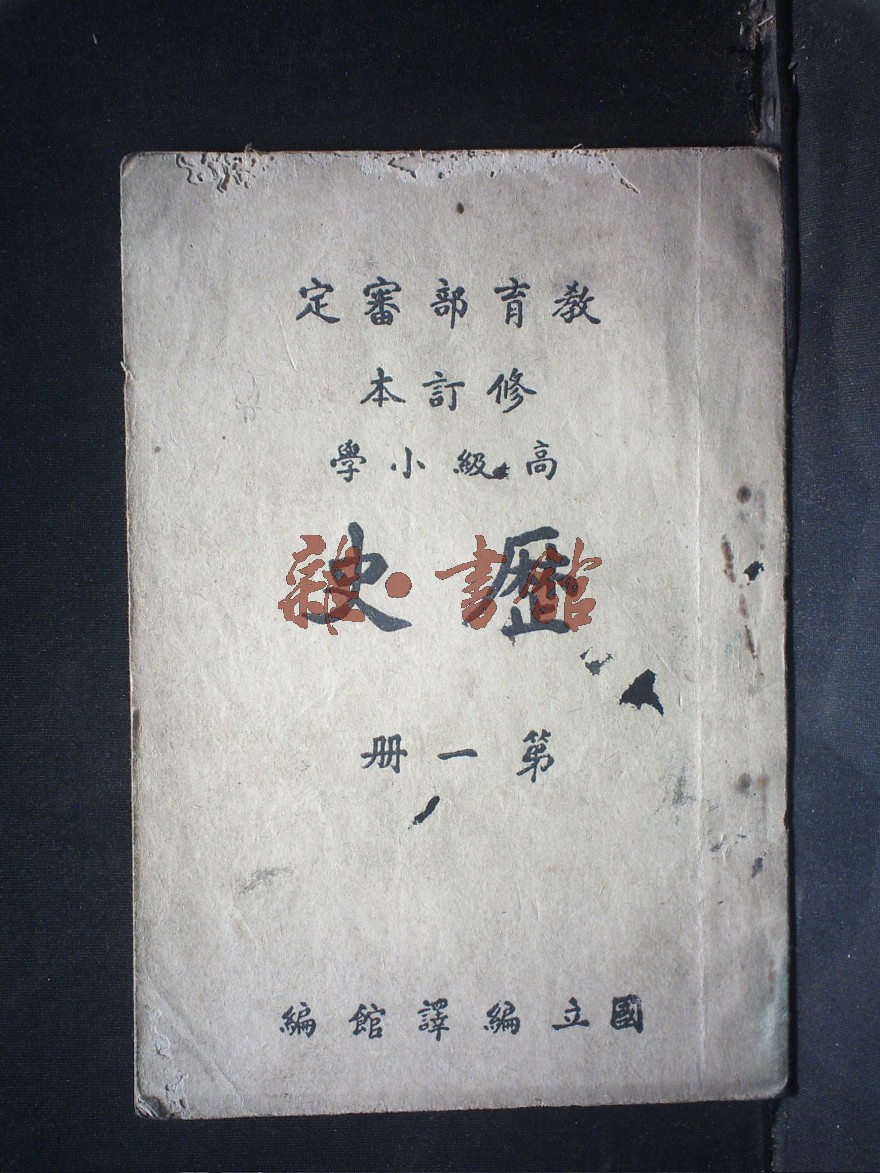 教育部審定
修訂本
高級小學
歷史
雜·書館
第一册
國立編譯館編